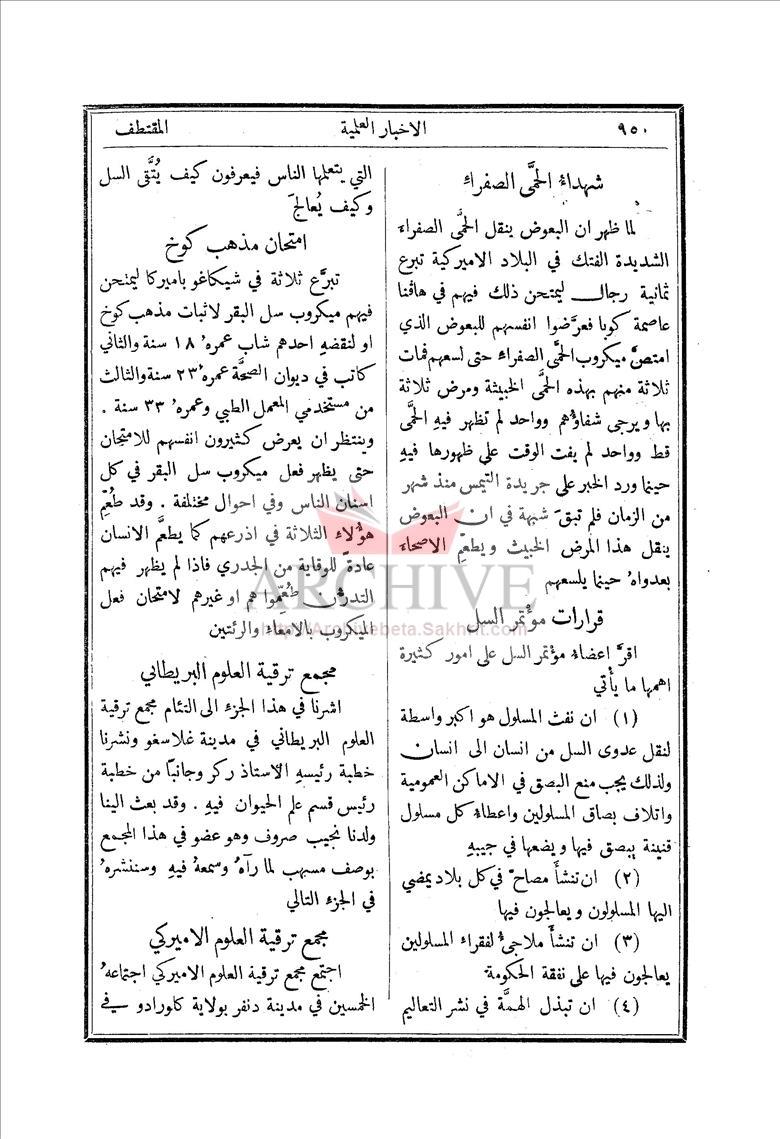 ٩٥٠
الاخبار العلمية
المقتطف
شهداءُ الحمَّى الصفراءِ
لما ظهر ان البعوض ينقل الحمَّى الصفراءَ
الشديدة الفتك في البلاد الاميركية تبرع
ثمانية رجال ليمتحن ذلك فيهم في هافنا
عاصمة كوبا فعرَّضوا انفسهم للبعوض الذي
امتصَّ ميكروب الحمَّى الصفراءِ حتى لسعهم فمات
ثلاثة منهم بهذه الحمَّى الخبيثة ومرض ثلاثة
بها ويرجى شفاؤُهم وواحد لم تظهر فيهِ الحمَّى
قط وواحد لم يفت الوقت على ظهورها فيهِ
حينما ورد الخبر على جريدة التيمس منذ شهر
من الزمان فلم تبقَ شبهة في ان البعوض
ينقل هذا المرض الخبيث ويطعّم الاصحاءَ
بعدواهُ حينما يلسعهم
قرارات مؤتمر السل
اقرَّ اعضاءُ مؤتمر السل على امور كثيرة
اهمها ما يأْتي
(١) ان نفث المسلول هو اكبر واسطة
لنقل عدوى السل من انسان الى انسان
ولذلك يجب منع البصق في الاماكن العمومية
واتلاف بصاق المسلولين واعطاءُ كل مسلول
قنينة يبصق فيها ويضعها في جيبهِ
(٢) ان تنشأَ مصاحّ في كل بلاد يمضي
اليها المسلولون ويعالجون فيها
(٣) ان تنشأَ ملاجئُ لفقراء المسلولين
يعالجون فيها على نفقة الحكومة
(٤) ان تبذل الهمَّة في نشر التعاليم
التي يتعلمها الناس فيعرفون كيف يُتَّقى السل
وكيف يُعالج
امتحان مذهب كوخ
تبرَّع ثلاثة في شيكاغو باميركا ليمتحن
فيهم ميكروب سل البقر لاثبات مذهب كوخ
او لنقضهِ احدهم شاب عمرهُ ١٨ سنة والثاني
كاتب في ديوان الصحَّة عمرهُ ٢٣ سنة والثالث
من مستخدمي المعمل الطبي وعمرهُ ٣٣ سنة .
وينتظر ان يعرض كثيرون انفسهم للامتحان
حتى يظهر فعل ميكروب سل البقر في كل
اسنان الناس وفي احوال مختلفة . وقد طُعّم
هؤُلاءِ الثلاثة في اذرعهم كما يطعَّم الانسان
عادةً للوقاية من الجدري فاذا لم يظهر فيهم
التدرُّن طُعّموا هم او غيرهم لامتحان فعل
الميكروب بالامعاءِ والرئتين
مجمع ترقية العلوم البريطاني
اشرنا في هذا الجزءِ الى التئام مجمع ترقية
العلوم البريطاني في مدينة غلاسغو ونشرنا
خطبة رئيسهِ الاستاذ ركر وجانباً من خطبة
رئيس قسم علم الحيوان فيهِ . وقد بعث الينا
ولدنا نجيب صروف وهو عضو في هذا المجمع
بوصف مسهب لما رآهُ وسمعهُ فيهِ وسننشرهُ
في الجزءِ التالي
مجمع ترقية العلوم الاميركي
اجتمع مجمع ترقية العلوم الاميركي اجتماعهُ
الخمسين في مدينة دنفر بولاية كلورادو في
ARCHIVE
http://Archivebeta.Sakhrit.com